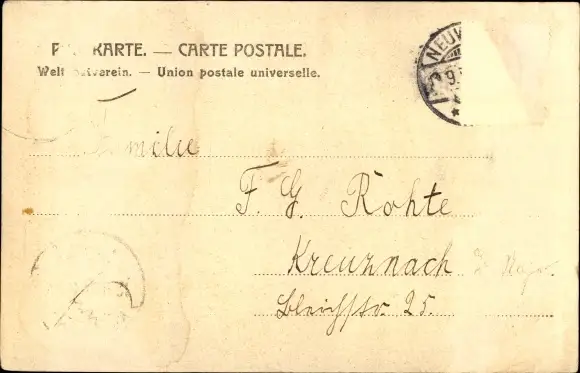 KARTE. — CARTE POSTALE.
Weltpostverein. — Union postale universelle.
NEUW
9.
Familie
F. G. Rohte
Kreuznach
Bleichstr. 25.